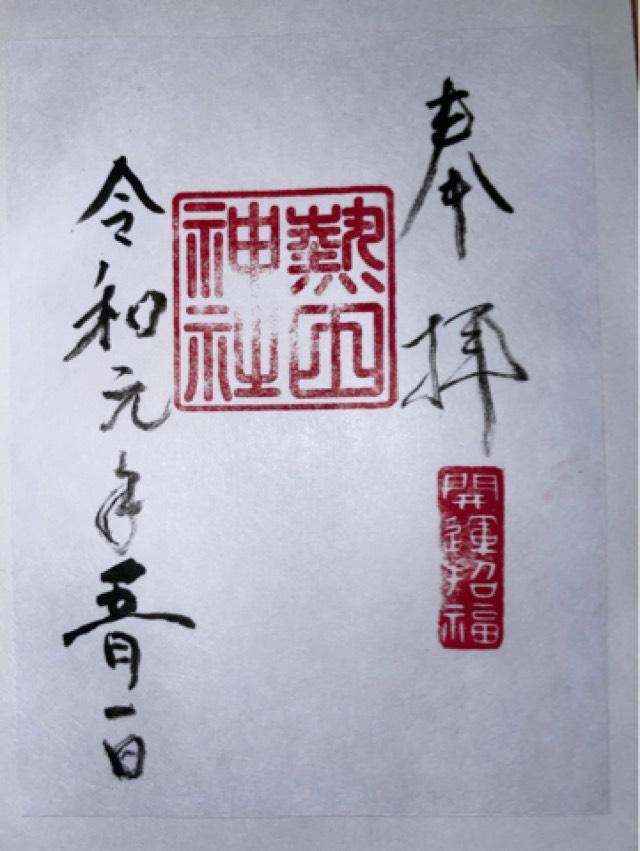 奉拝
開運招福
熱田
神社
令和元年五月一日